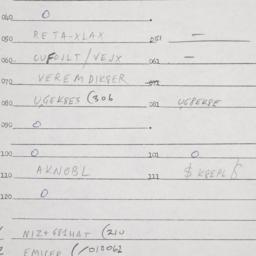 040 0
050 RETA-XLAX 051 —
060 OUFOILT/VEJX 061 —
070 VEREMDIKSER 072
080 UGEKSES (306 081 UGPEKSE
090 0
100 0 101 0
110 AKNOBL 111
120 0
NIZ+681HAT (210
EMIFER (/012062